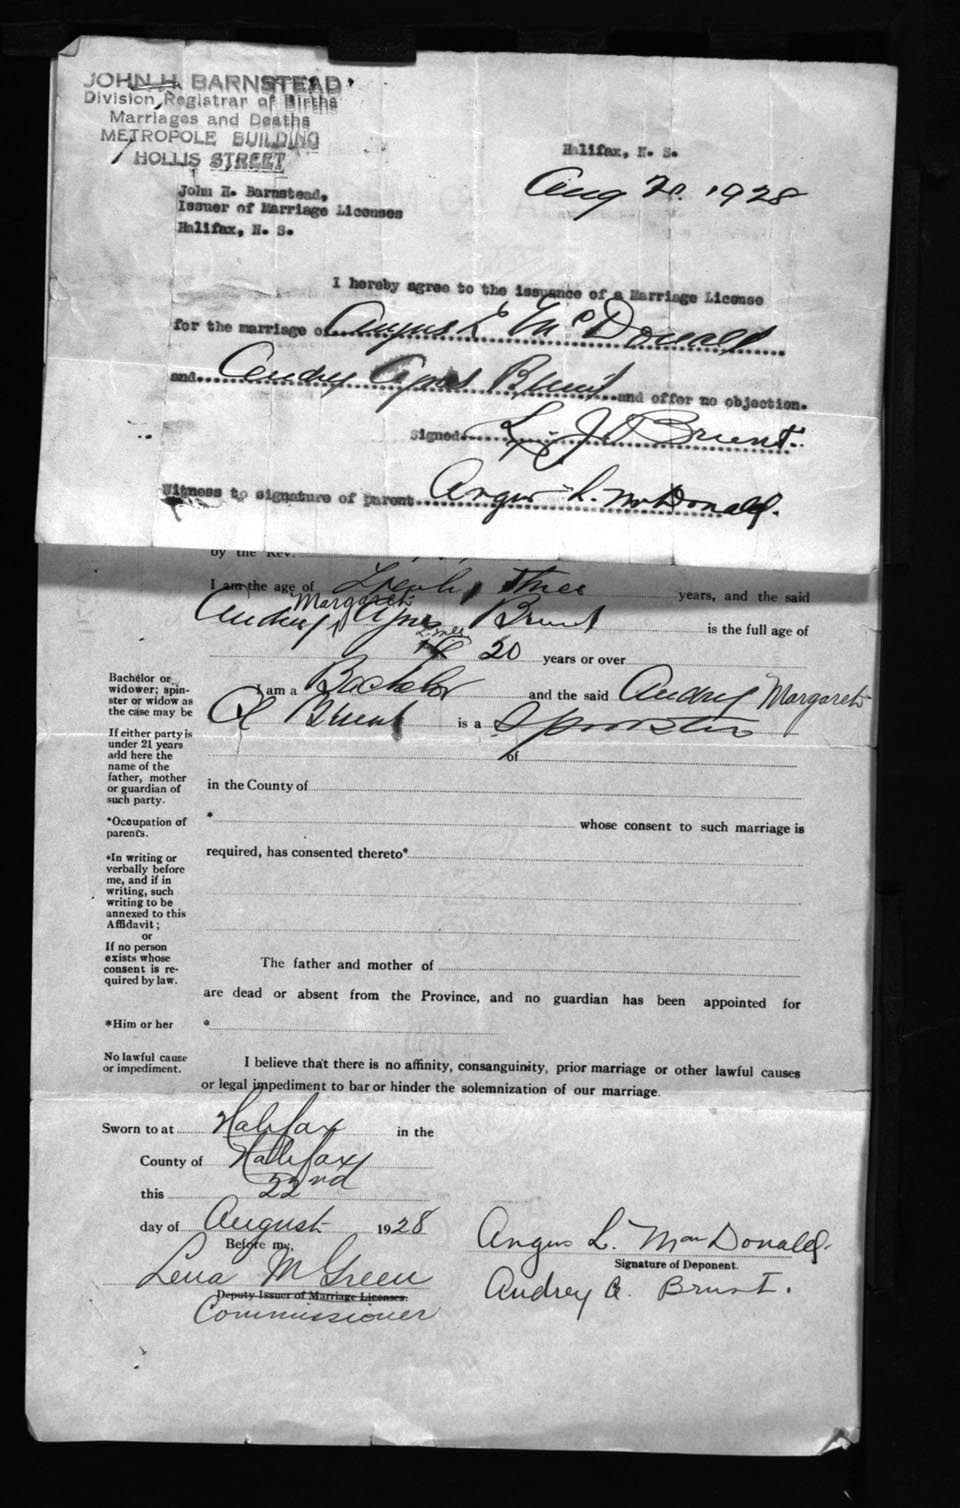 JOHN H. BARNSTEAD
Division Registrar of Births
Marriages and Deaths
METROPOLE BUILDING
HOLLIS STREET
Halifax, N. S.
Aug 20. 1928
John H. Barnstead,
Issuer of Marriage Licenses
Halifax, N. S.
I hereby agree to the issuance of a Marriage License
for the marriage of Angus L McDonald
and Audry Agnes Brunt and offer no objection.
Signed L. J. Brunt.
Witness to signature of parent Angus L. McDonald.
by the Rev.
I am the age of Twenty three years, and the said
Margaret
Audry Agnes Brunt is the full age of
20 years or over
Bachelor or widower; spinster or widow as the case may be
I am a Bachelor and the said Audry Margaret
A Brunt is a Spinster
If either party is under 21 years add here the name of the father, mother or guardian of such party.
of
in the County of
*Occupation of parents.
* whose consent to such marriage is
required, has consented thereto*
*In writing or verbally before me, and if in writing, such writing to be annexed to this Affidavit;
or
If no person exists whose consent is required by law.
The father and mother of
are dead or absent from the Province, and no guardian has been appointed for
*Him or her *
No lawful cause or impediment.
I believe that there is no affinity, consanguinity, prior marriage or other lawful causes
or legal impediment to bar or hinder the solemnization of our marriage.
Sworn to at Halifax in the
County of Halifax
this 22nd
day of August 1928
Before me,
Lena M Green
Deputy Issuer of Marriage Licenses.
Commissioner
Angus L. MacDonald.
Signature of Deponent.
Audrey A. Brunt.